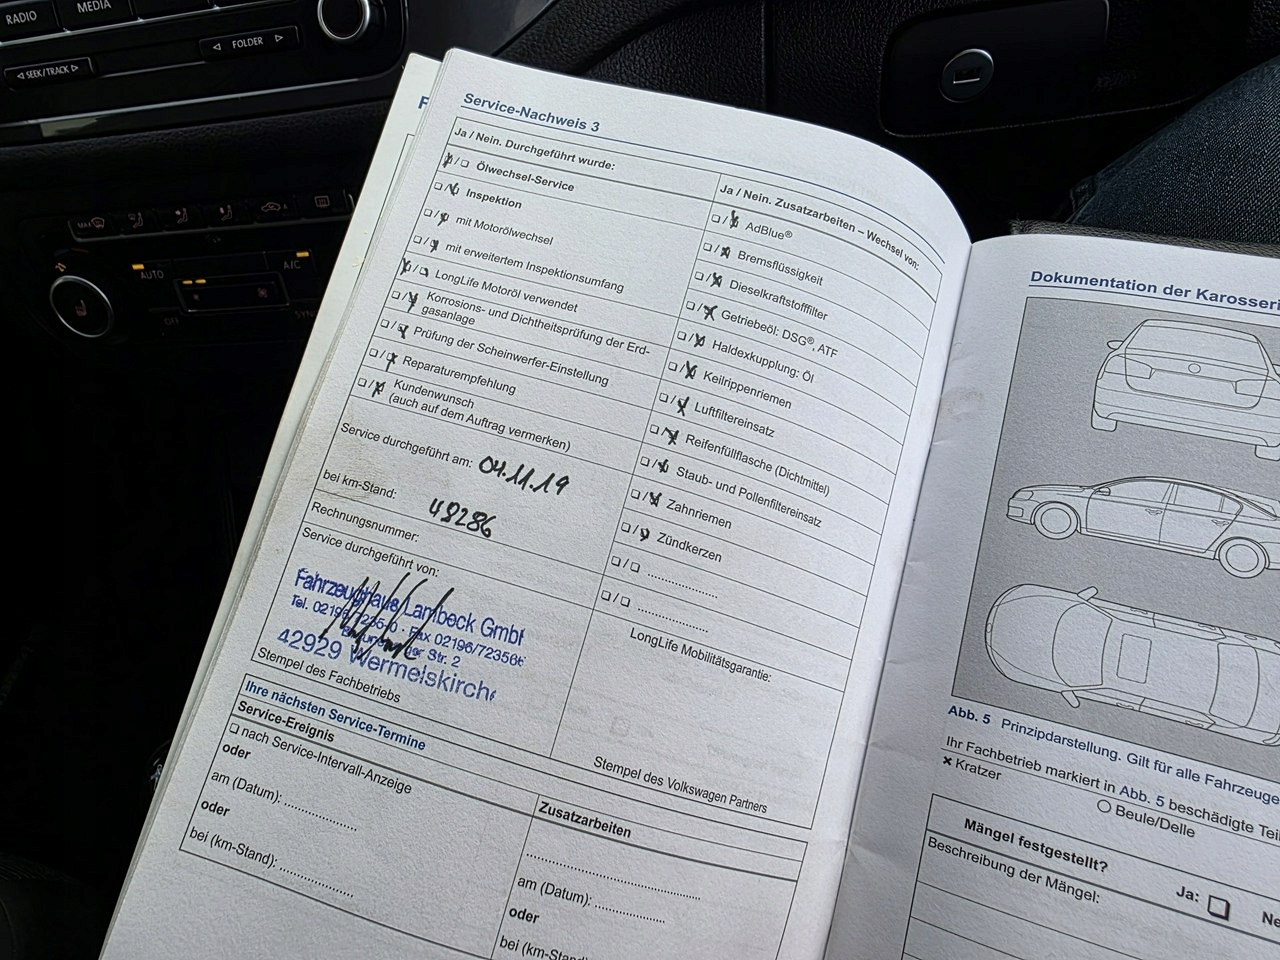 RADIO
MEDIA
FOLDER
SEEK/TRACK
AUTO
A/C
OFF
Service-Nachweis 3
Ja / Nein. Durchgeführt wurde:
Ölwechsel-Service
Inspektion
mit Motorölwechsel
mit erweitertem Inspektionsumfang
LongLife Motoröl verwendet
Korrosions- und Dichtheitsprüfung der Erd-
gasanlage
Prüfung der Scheinwerfer-Einstellung
Reparaturempfehlung
Kundenwunsch
(auch auf dem Auftrag vermerken)
Service durchgeführt am: 04.11.19
bei km-Stand: 48286
Rechnungsnummer:
Service durchgeführt von:
Fahrzeughaus Lambeck GmbH
Fax 02196/72356
Str. 2
42929 Wermelskirch
Stempel des Fachbetriebs
Ja / Nein. Zusatzarbeiten – Wechsel von:
AdBlue®
Bremsflüssigkeit
Dieselkraftstofffilter
Getriebeöl: DSG®, ATF
Haldexkupplung: Öl
Keilrippenriemen
Luftfiltereinsatz
Reifenfüllflasche (Dichtmittel)
Staub- und Pollenfiltereinsatz
Zahnriemen
Zündkerzen
LongLife Mobilitätsgarantie:
Stempel des Volkswagen Partners
Ihre nächsten Service-Termine
Service-Ereignis
nach Service-Intervall-Anzeige
oder
am (Datum):
oder
bei (km-Stand):
Zusatzarbeiten
am (Datum):
oder
bei (km-Stand):
Dokumentation der Karosseri
Abb. 5 Prinzipdarstellung. Gilt für alle Fahrzeuge
Ihr Fachbetrieb markiert in Abb. 5 beschädigte Teil
× Kratzer
Beule/Delle
Mängel festgestellt?
Ja:
Ne
Beschreibung der Mängel: